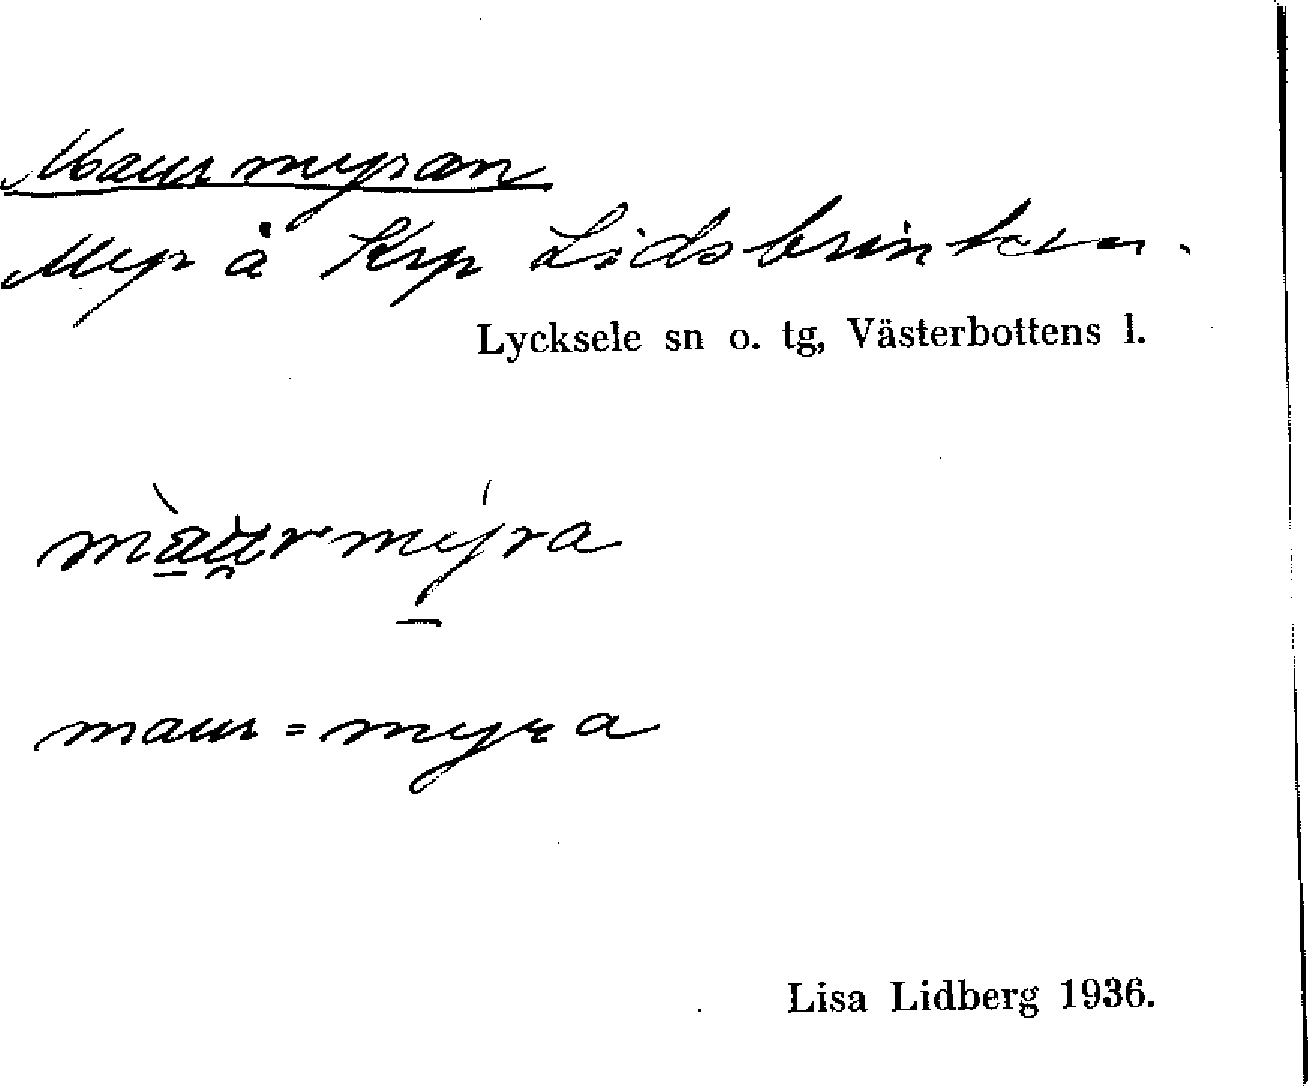 Maurmyran
Myr å Krp Lidsbrinken.
Lycksele sn o. tg, Västerbottens l.
màu̯rmýra
maur = myra
Lisa Lidberg 1936.